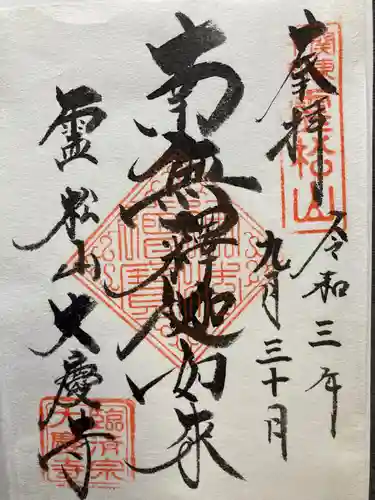 奉拝
令和三年
九月三十日
南無釋迦如来
霊松山大慶寺
関東
霊松山
臨済宗
大慶寺